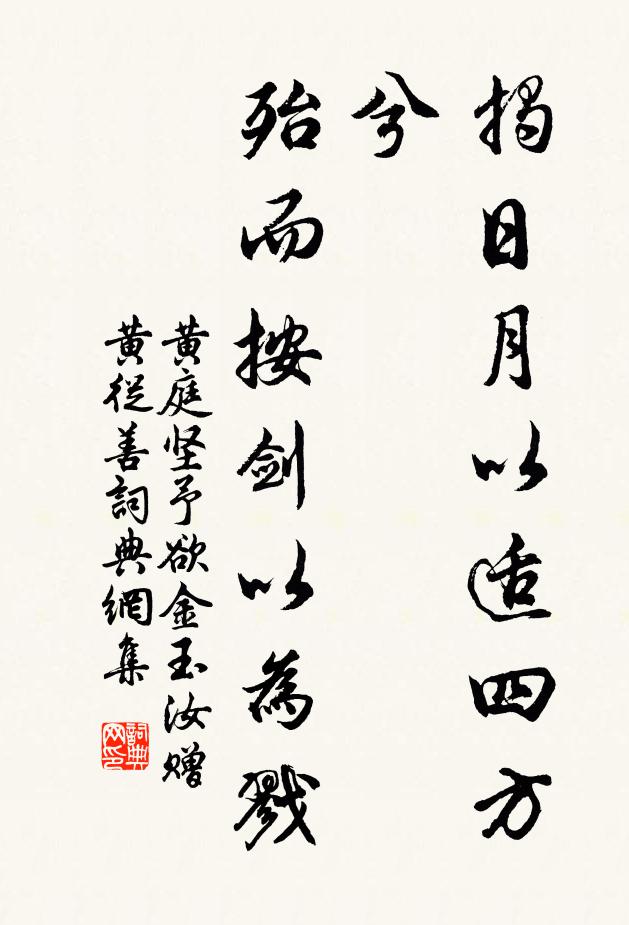 揭日月以适四方
兮
殆而按剑以為戮
黄庭坚予欲金玉汝赠
黄從善詞典網集
詞典網印